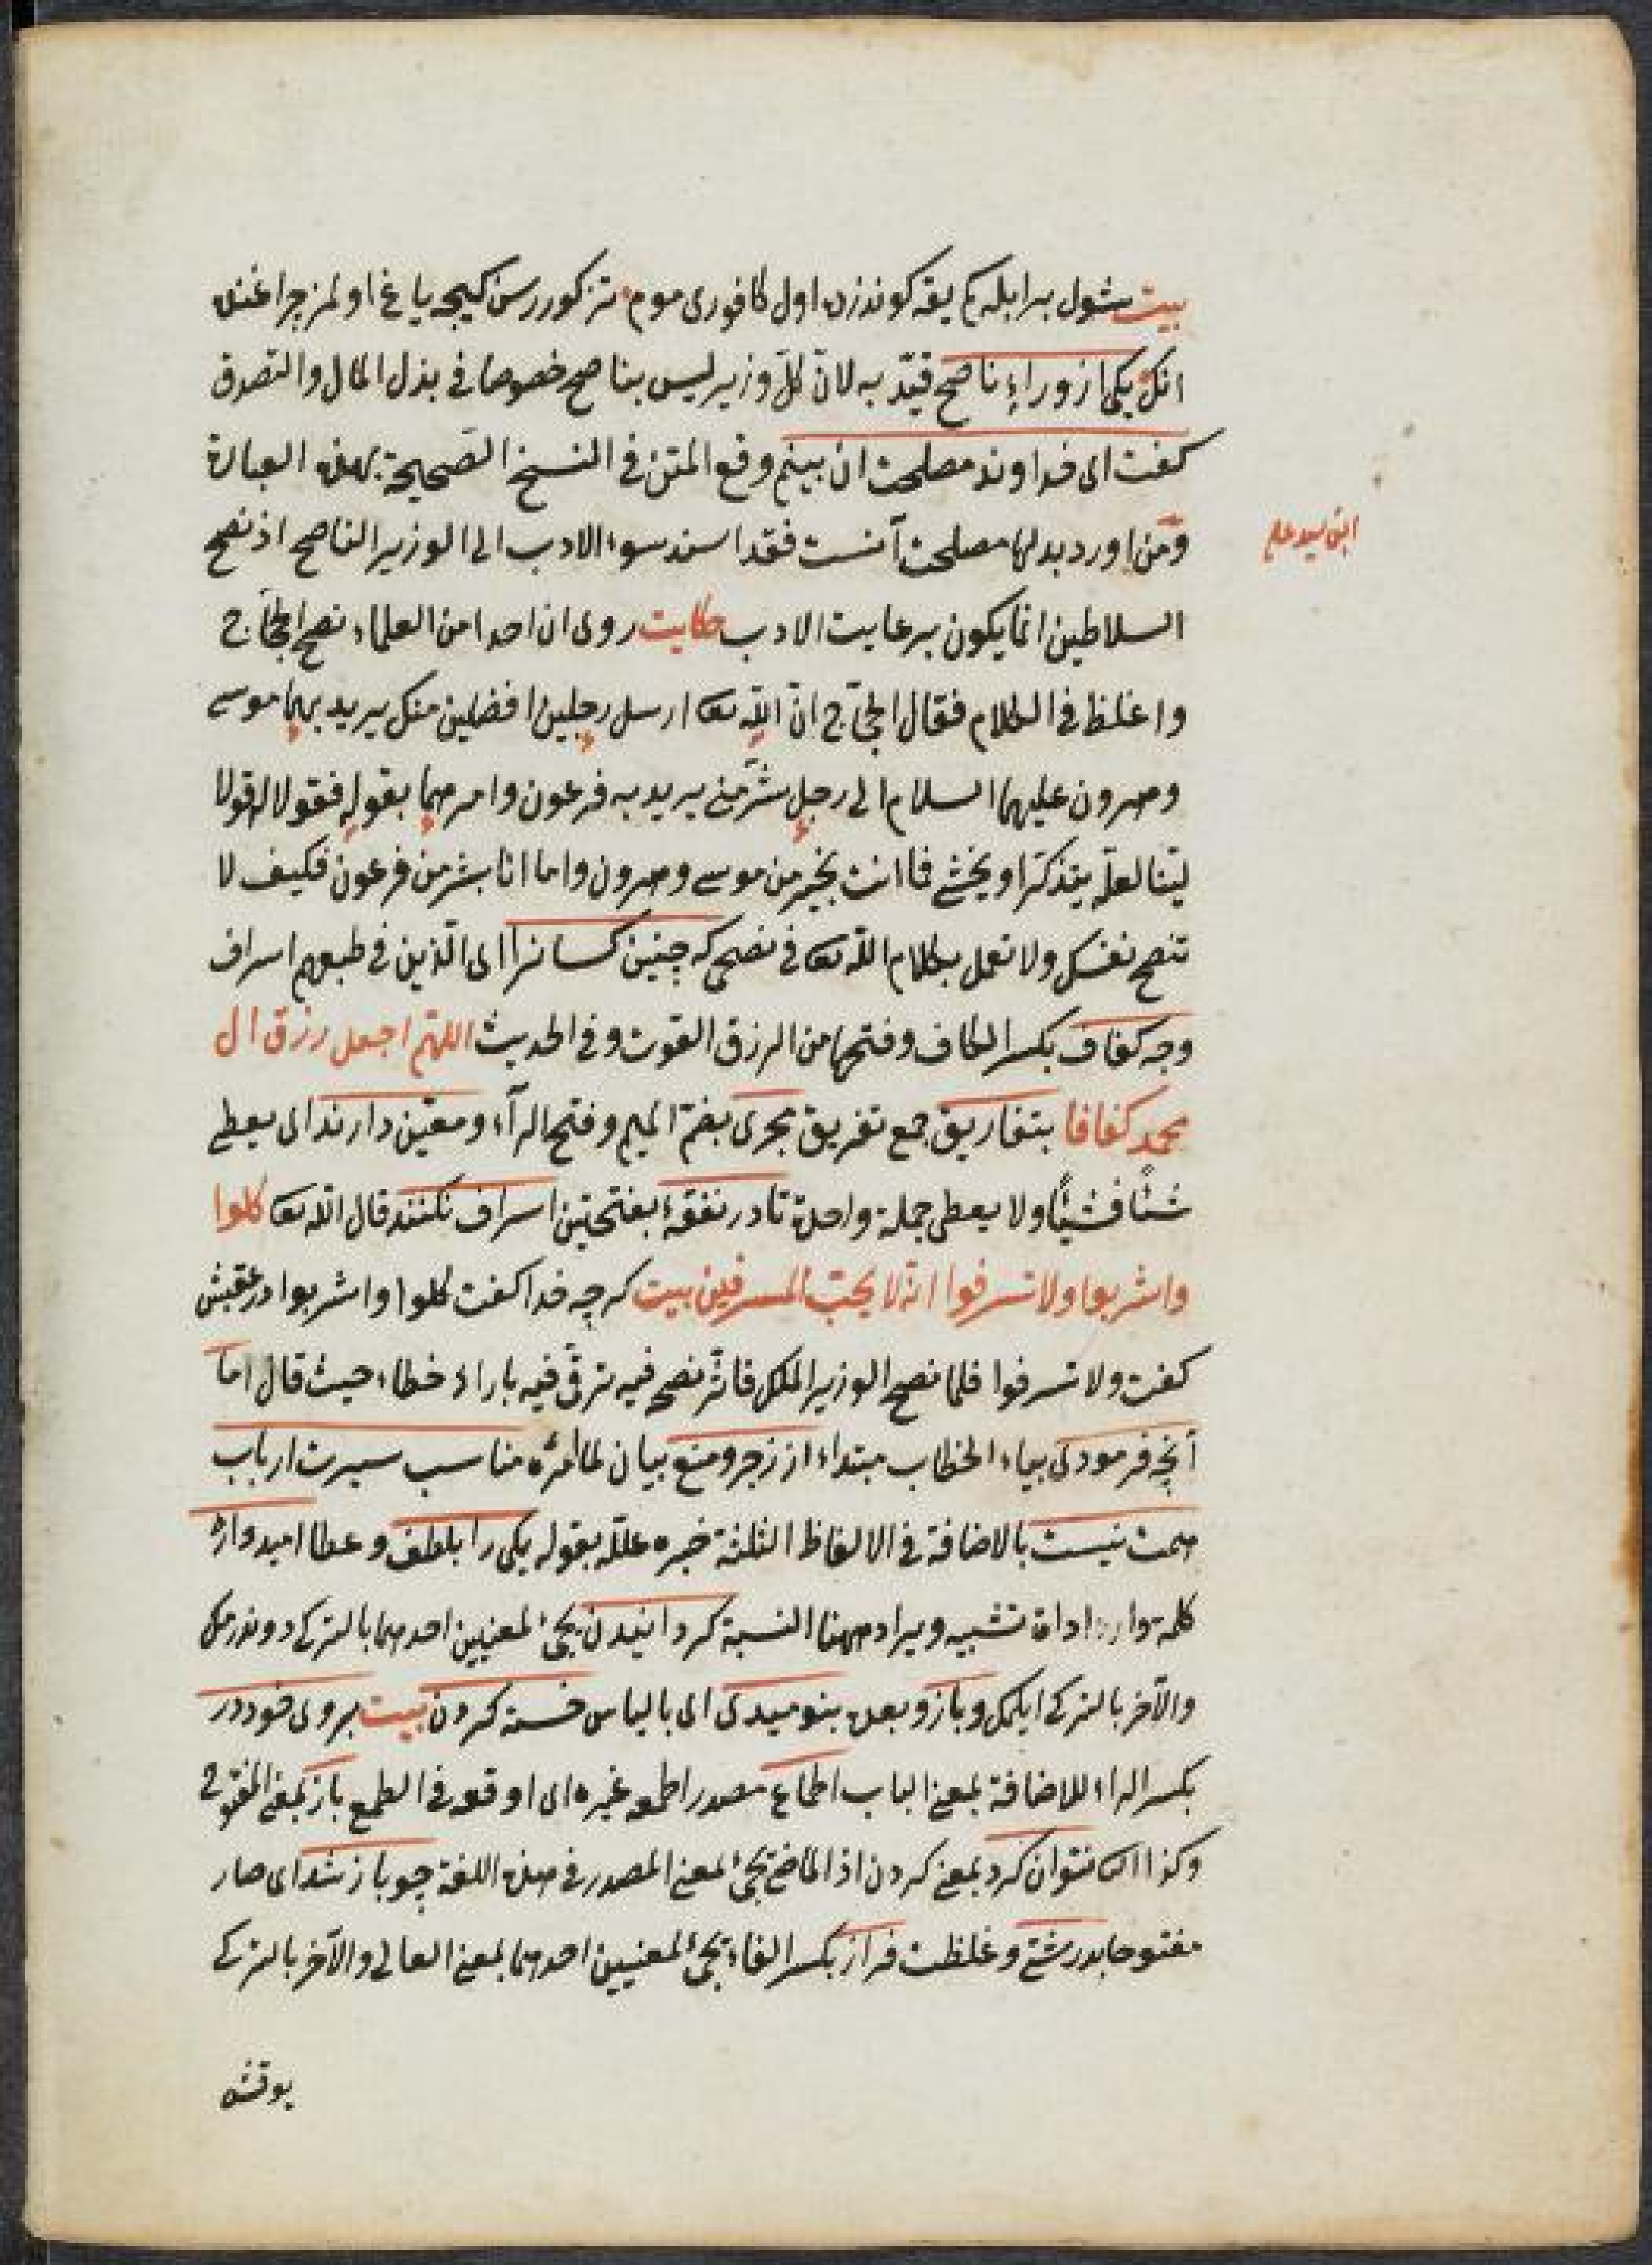 بيت شول بر ابله كم يقه كوندزن اول كافورى موم تز كوررسن كيجه ياغ اولمز جراغنن
انك يكى از وزراء ناصح قيّد به لانّ كلّ وزير ليس بناصح خصوصا فى بذل المال والتصدق
كفت اى خداوند مصلحت ان بينم وقع المتن فى النسخ الصّحيحة بهذه العبارة
ومن اورد بدلها مصلحت آنست فقد اسند سوء الادب الى الوزير الناصح اذ نصح
ابن سيد على
السلاطين انما يكون برعايت الادب حكايت روى ان احدا من العلماء نصح الحجّاج
واغلظ فى الكلام فقال الحجّاج انّ اللّه تعا ارسل رجلين افضلين منك يريد بهما موسى
وهرون عليهما السلام الى رجل شرّ منّى يريد به فرعون وامرهما بقوله فقولا له قولا
ليّنا لعلّه يتذكّر او يخشى فما انت بخير من موسى وهرون واما انا بشر من فرعون فكيف لا
تنصح نفسك ولا تعمل بكلام اللّه تعا فى نصحى كه چنين كسانرا اى الّذين فى طبعهم اسراف
وجه كفاف بكسر الكاف وفتحها من الرزق القوت وفى الحديث اللهمّ اجعل رزق ال
محمد كفافا بتفاريق جمع تفريق مجرى بضمّ الميم وفتح الرآء ومعيّن دارند اى يعطى
شئًا فشيئًا ولا يعطى جملة واحدة تا در نفقه بفتحتين اسراف نكنند قال اللّه تعا كلوا
واشربوا ولا تسرفوا انّه لا يحبّ المسرفين بيت كرچه خدا كفت كلوا واشربوا در عقبش
كفت ولا تسرفوا فلما نصح الوزير الملك فاثّر نصحه فيه ترقّى فيه باراد خطاء حيث قال اما
آنچه فرمودى بياء الخطاب مبتداء از زجر ومنع بيان لما امره مناسب سيرت ارباب
همت نيست بالاضافة فى الالفاظ الثلثة خبره علله بقوله يكى را بلطف وعطا اميدوار
كلمة دار اداة تشبيه ويراد ههنا النسبة كردانيدن يجئ لمعنيين احدهما بالتركى دوندرمك
والآخر بالتركى ايلمك وباز وبعده بنوميدى اى بالياس خسته كردن بيت بروى خود در
بكسر الراء للاضافة بمعنى الباب اطماع مصدر اطمعه غيره اى اوقعه فى الطمع باز بمعنى المفتوح
وكذا ... نتوان كرد بمعنى كردن اذ الماضى يجئ لمعنى المصدر فى هذه اللغة چو باز شد اى صار
مفتوحا بدرشتى وغلظت فراز بكسر الفاء يجئ لمعنيين احدهما بمعنى العالى والآخر بالتركى
يوقشه